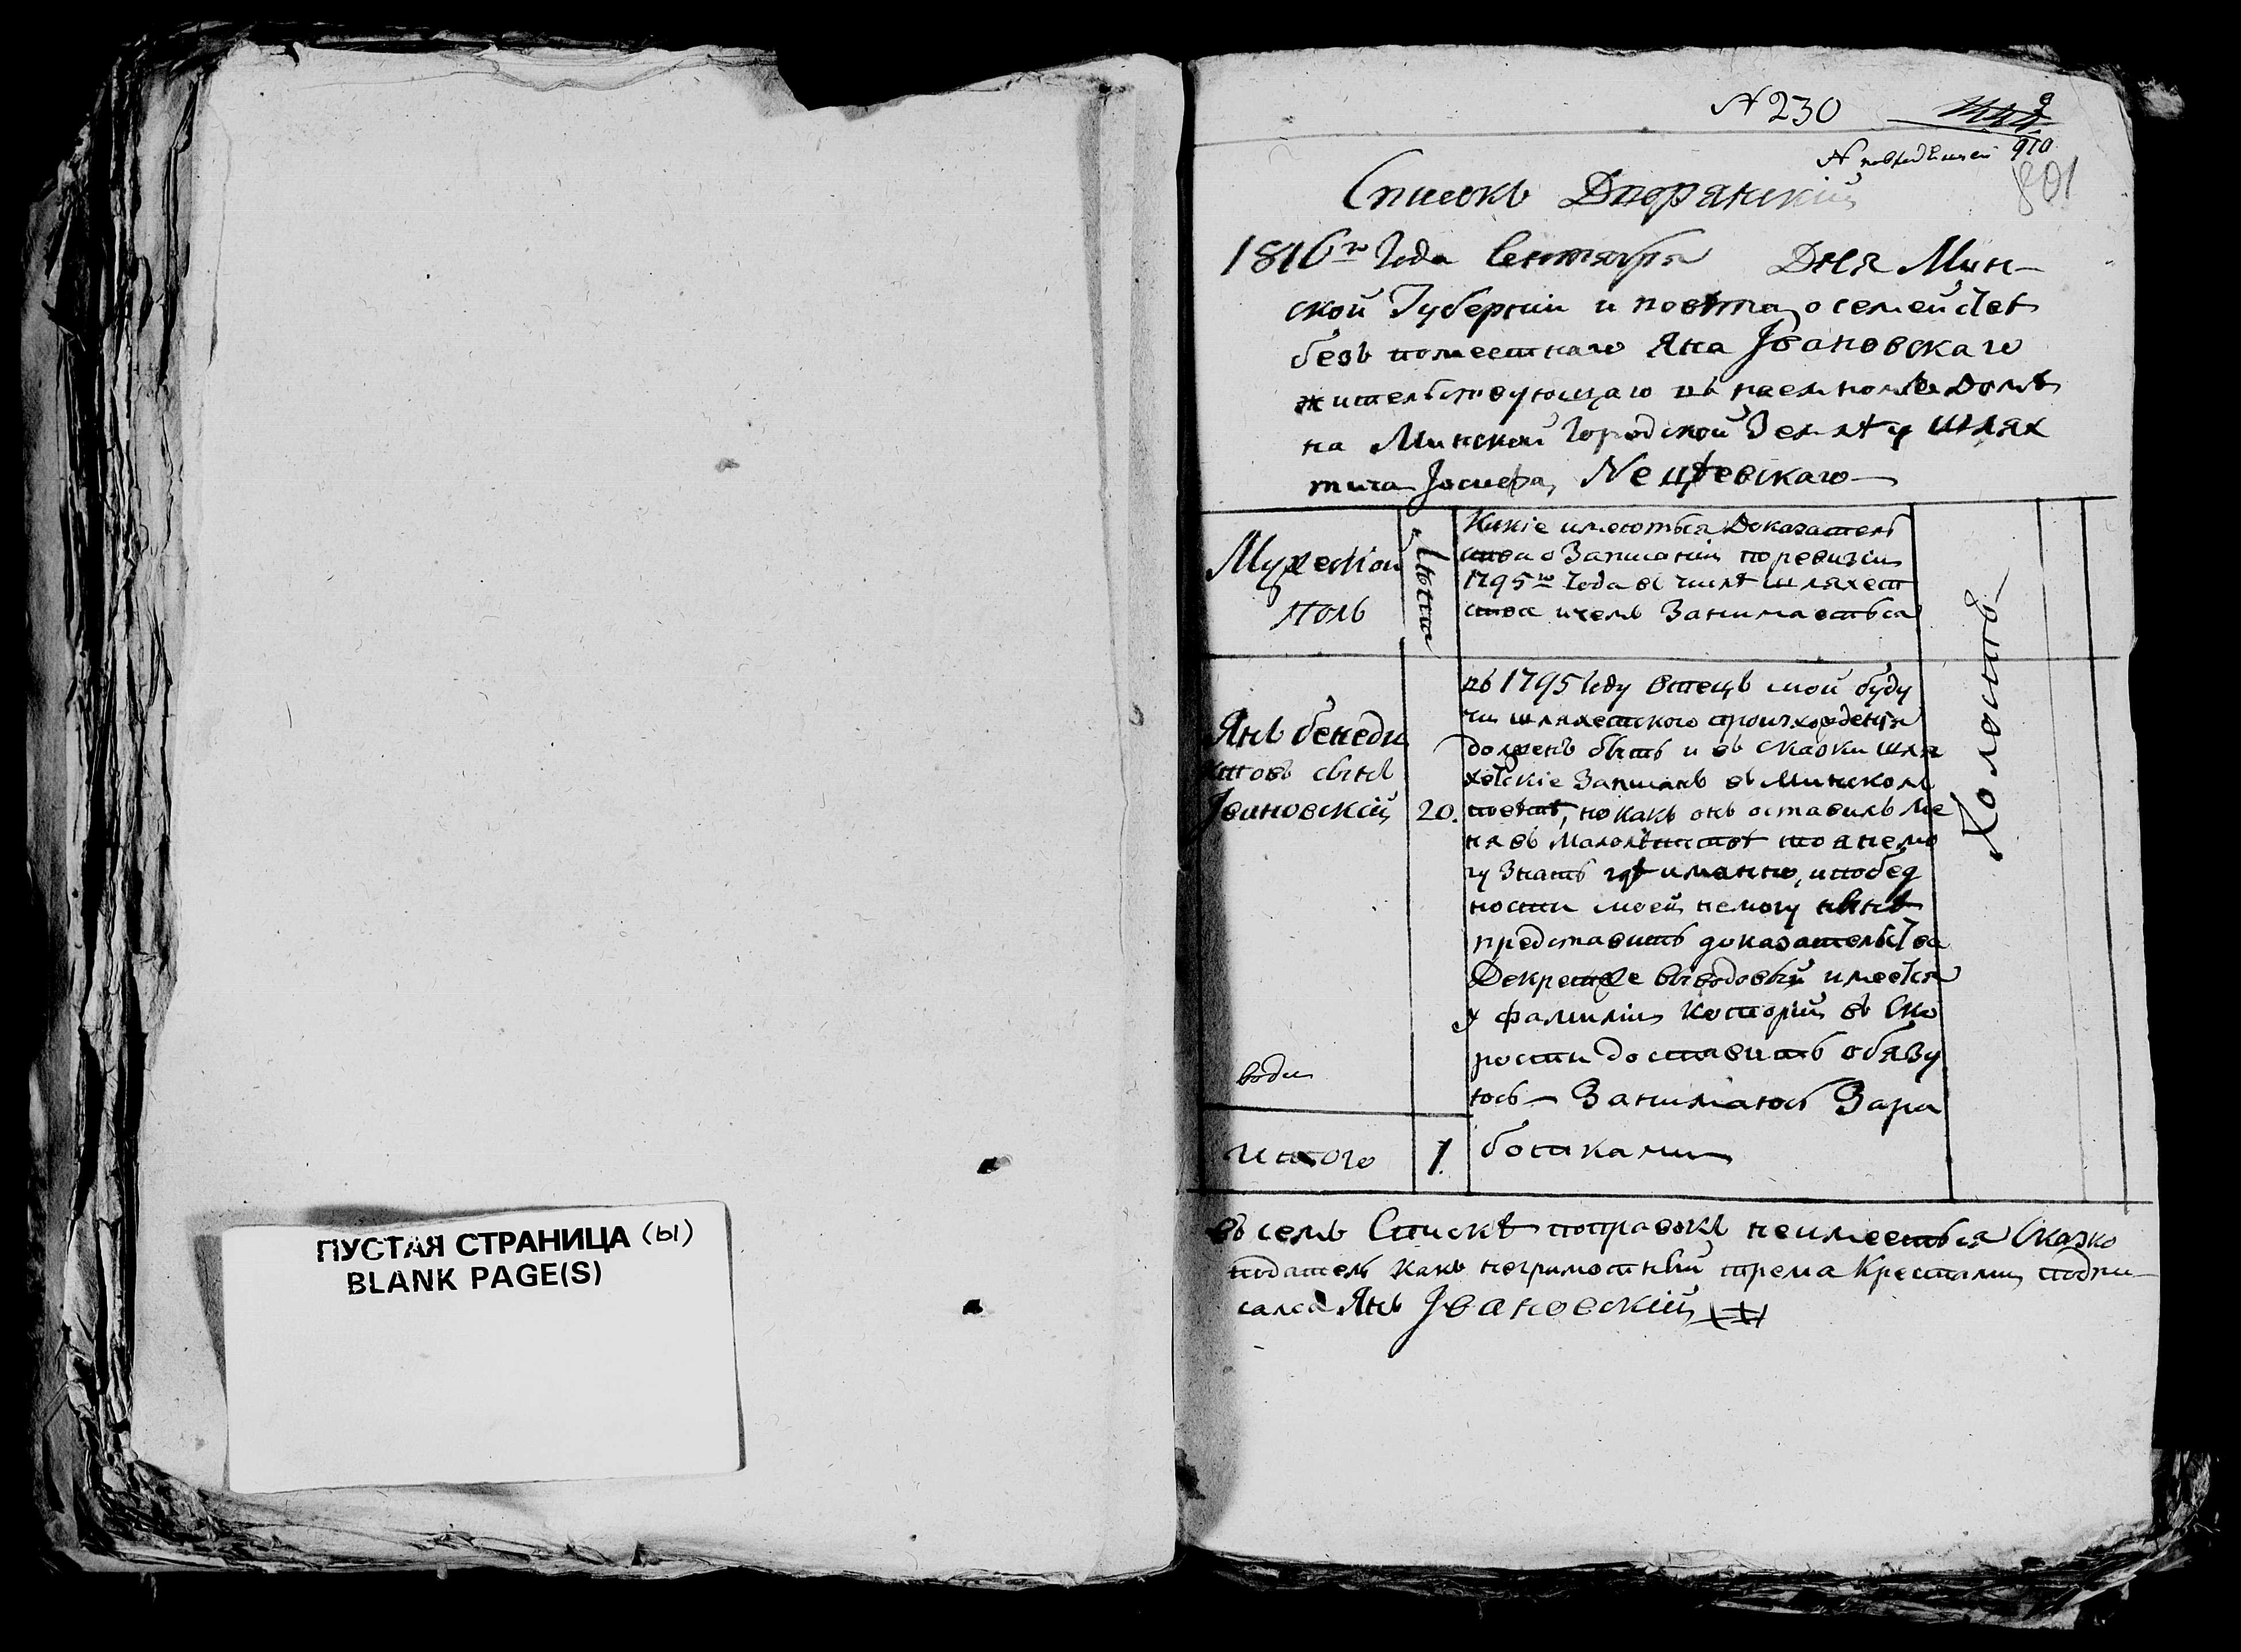 ПУСТАЯ СТРАНИЦА (ы)
BLANK PAGE(S)
№ 230
9
910
801
Списокъ Дворянскій
1816го Года Сентября Дня Мин-
ской Губерніи и повѣта о семействѣ
безъ поместнаго Яна Јвановскаго
жительствующаго въ наемномъ домѣ
на Минской Городской Землѣ у шлях
тича Јосифа,
Мужескій
полъ
Лѣта
Какіе имеютъся Доказатель
ства о Записаніи по ревизіи
1795го Года въ числѣ шляхет
ства и чемъ Занимаетъся
Янъ бенеди
ктовъ сынъ
Јвановскій
20.
въ 1795 году Отецъ мой буду
чи шляхетского происхожденія
долженъ быть и въ сказки шля
хетскіе Записанъ въ Минскомъ
повѣтѣ, но какъ онъ оставилъ ме
ня въ малолѣтстве то я не мо
гу Знать гдѣ именно, и по бед
ности моей не могу нынѣ
представить доказательства
Декретъ же выводовый имеется
у фамиліи которій въ Ско
рости доставить обязу
юсь — Занимаюсь Зара
ботками
Холостъ
Итого
1.
въ семъ Спискѣ поправокъ неимеетъся Сказко
податель какъ неграмотный трема крестами подпи-
сался Янъ Јвановскій ххх